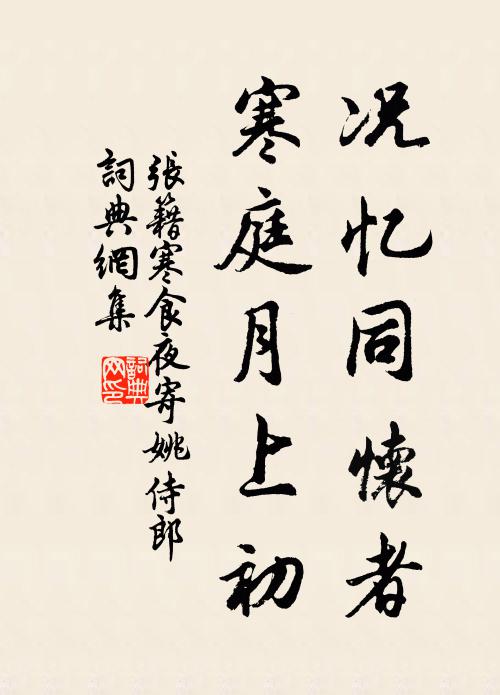 况忆同懷者
寒庭月上初
張籍寒食夜寄姚侍郎
詞典網集
詞典网印